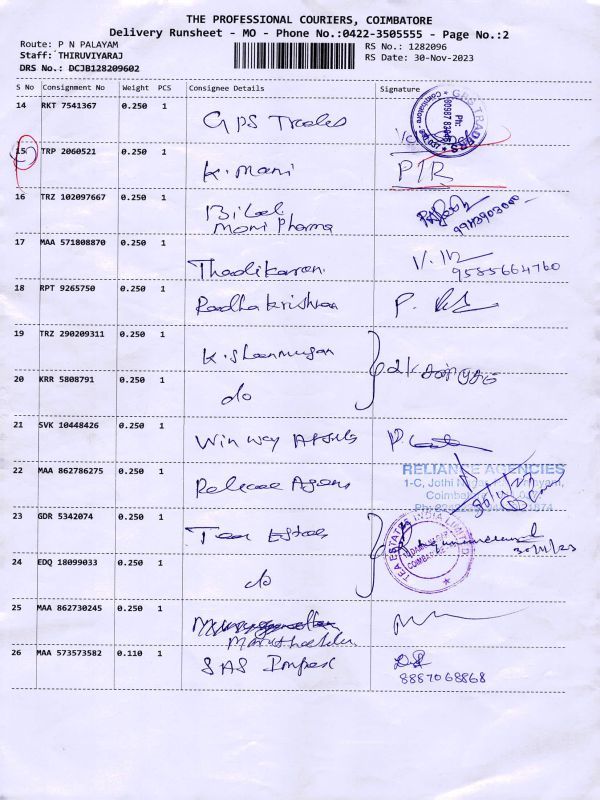 THE PROFESSIONAL COURIERS, COIMBATORE
Delivery Runsheet - MO - Phone No.:0422-3505555 - Page No.:2
Route: P N PALAYAM
Staff: THIRUVIYARAJ
DRS No.: DCJB128209602
RS No.: 1282096
RS Date: 30-Nov-2023
S No Consignment No Weight PCS Consignee Details Signature
14 RKT 7541367 0.250 1 GPS Trades
GPS TRADERS
15 TRP 2060521 0.250 1 K. Mani PTR
16 TRZ 102097667 0.250 1 Bilal
Moni Pharma
17 MAA 571808870 0.250 1 Thadikaran V.
9585664760
18 RPT 9265750 0.250 1 Radha krishnan P.
19 TRZ 290209311 0.250 1 K. Shanmugan
20 KRR 5808791 0.250 1 do
21 SVK 10448426 0.250 1 Win way
22 MAA 862786275 0.250 1 Reliance Agens
RELIANCE AGENCIES
1-C, Jothi
Coimbat
23 GDR 5342074 0.250 1 Tea Estates
TEA ESTATES INDIA LIMITED
COIMBATORE
30/11/23
24 EDQ 18099033 0.250 1 do
25 MAA 862730245 0.250 1
26 MAA 573573582 0.110 1 SAS Impex
8887068868